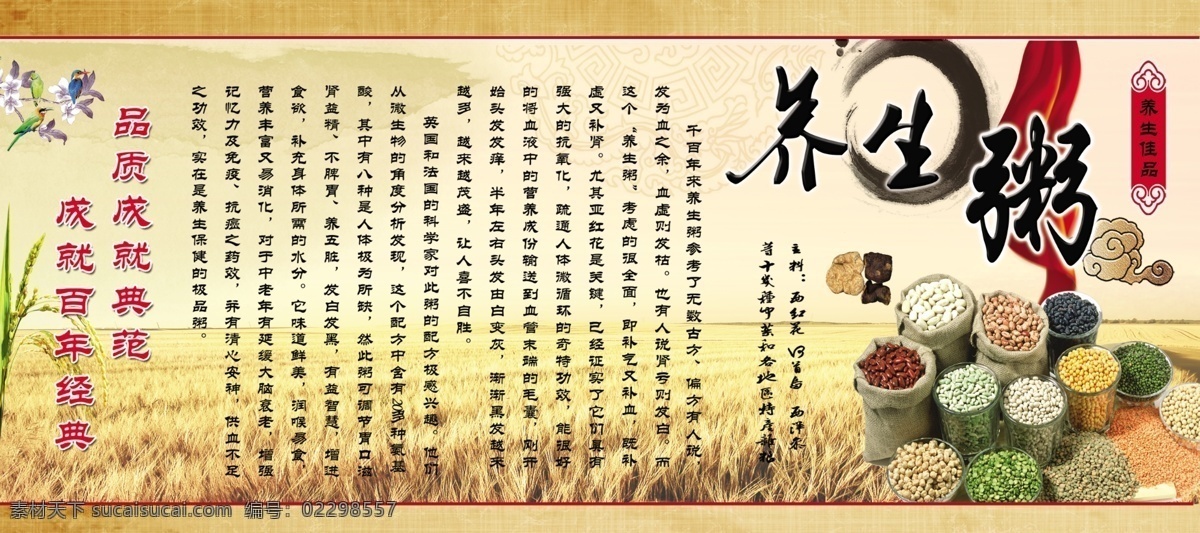 养生佳品
养生粥
主料：西红花 首乌 西洋参
等十种中药和各地区特产
千百年来养生粥参考了无数古方、偏方有人说：
发为血之余，血虚则发枯。也有人说肾亏则发白。而
这个“养生粥”考虑的很全面，即补气又补血，既补
虚又补肾。尤其亚红花是关键，已经证实了它们具有
强大的抗氧化，疏通人体微循环的奇特功效，能很好
的将血液中的营养成份输送到血管末端的毛囊，刚开
始头发发痒，半年左右头发由白变灰，渐渐黑发越来
越多，越来越茂盛，让人喜不自胜。
英国和法国的科学家对此粥的配方极感兴趣。他们
从微生物的角度分析发现，这个配方中含有28多种氨基
酸，其中有八种是人体极为所缺，然此粥可调节胃口滋
肾益精、不脾胃、养五脏，发白发黑，有益智慧、增进
食欲，补充身体所需的水分。它味道鲜美，润喉易食，
营养丰富又易消化，对于中老年有延缓大脑衰老，增强
记忆力及免疫、抗癌之药效，并有清心安神，供血不足
之功效，实在是养生保健的极品粥。
品质成就典范
成就百年经典
素材天下 sucaisucai.com 编号：02298557